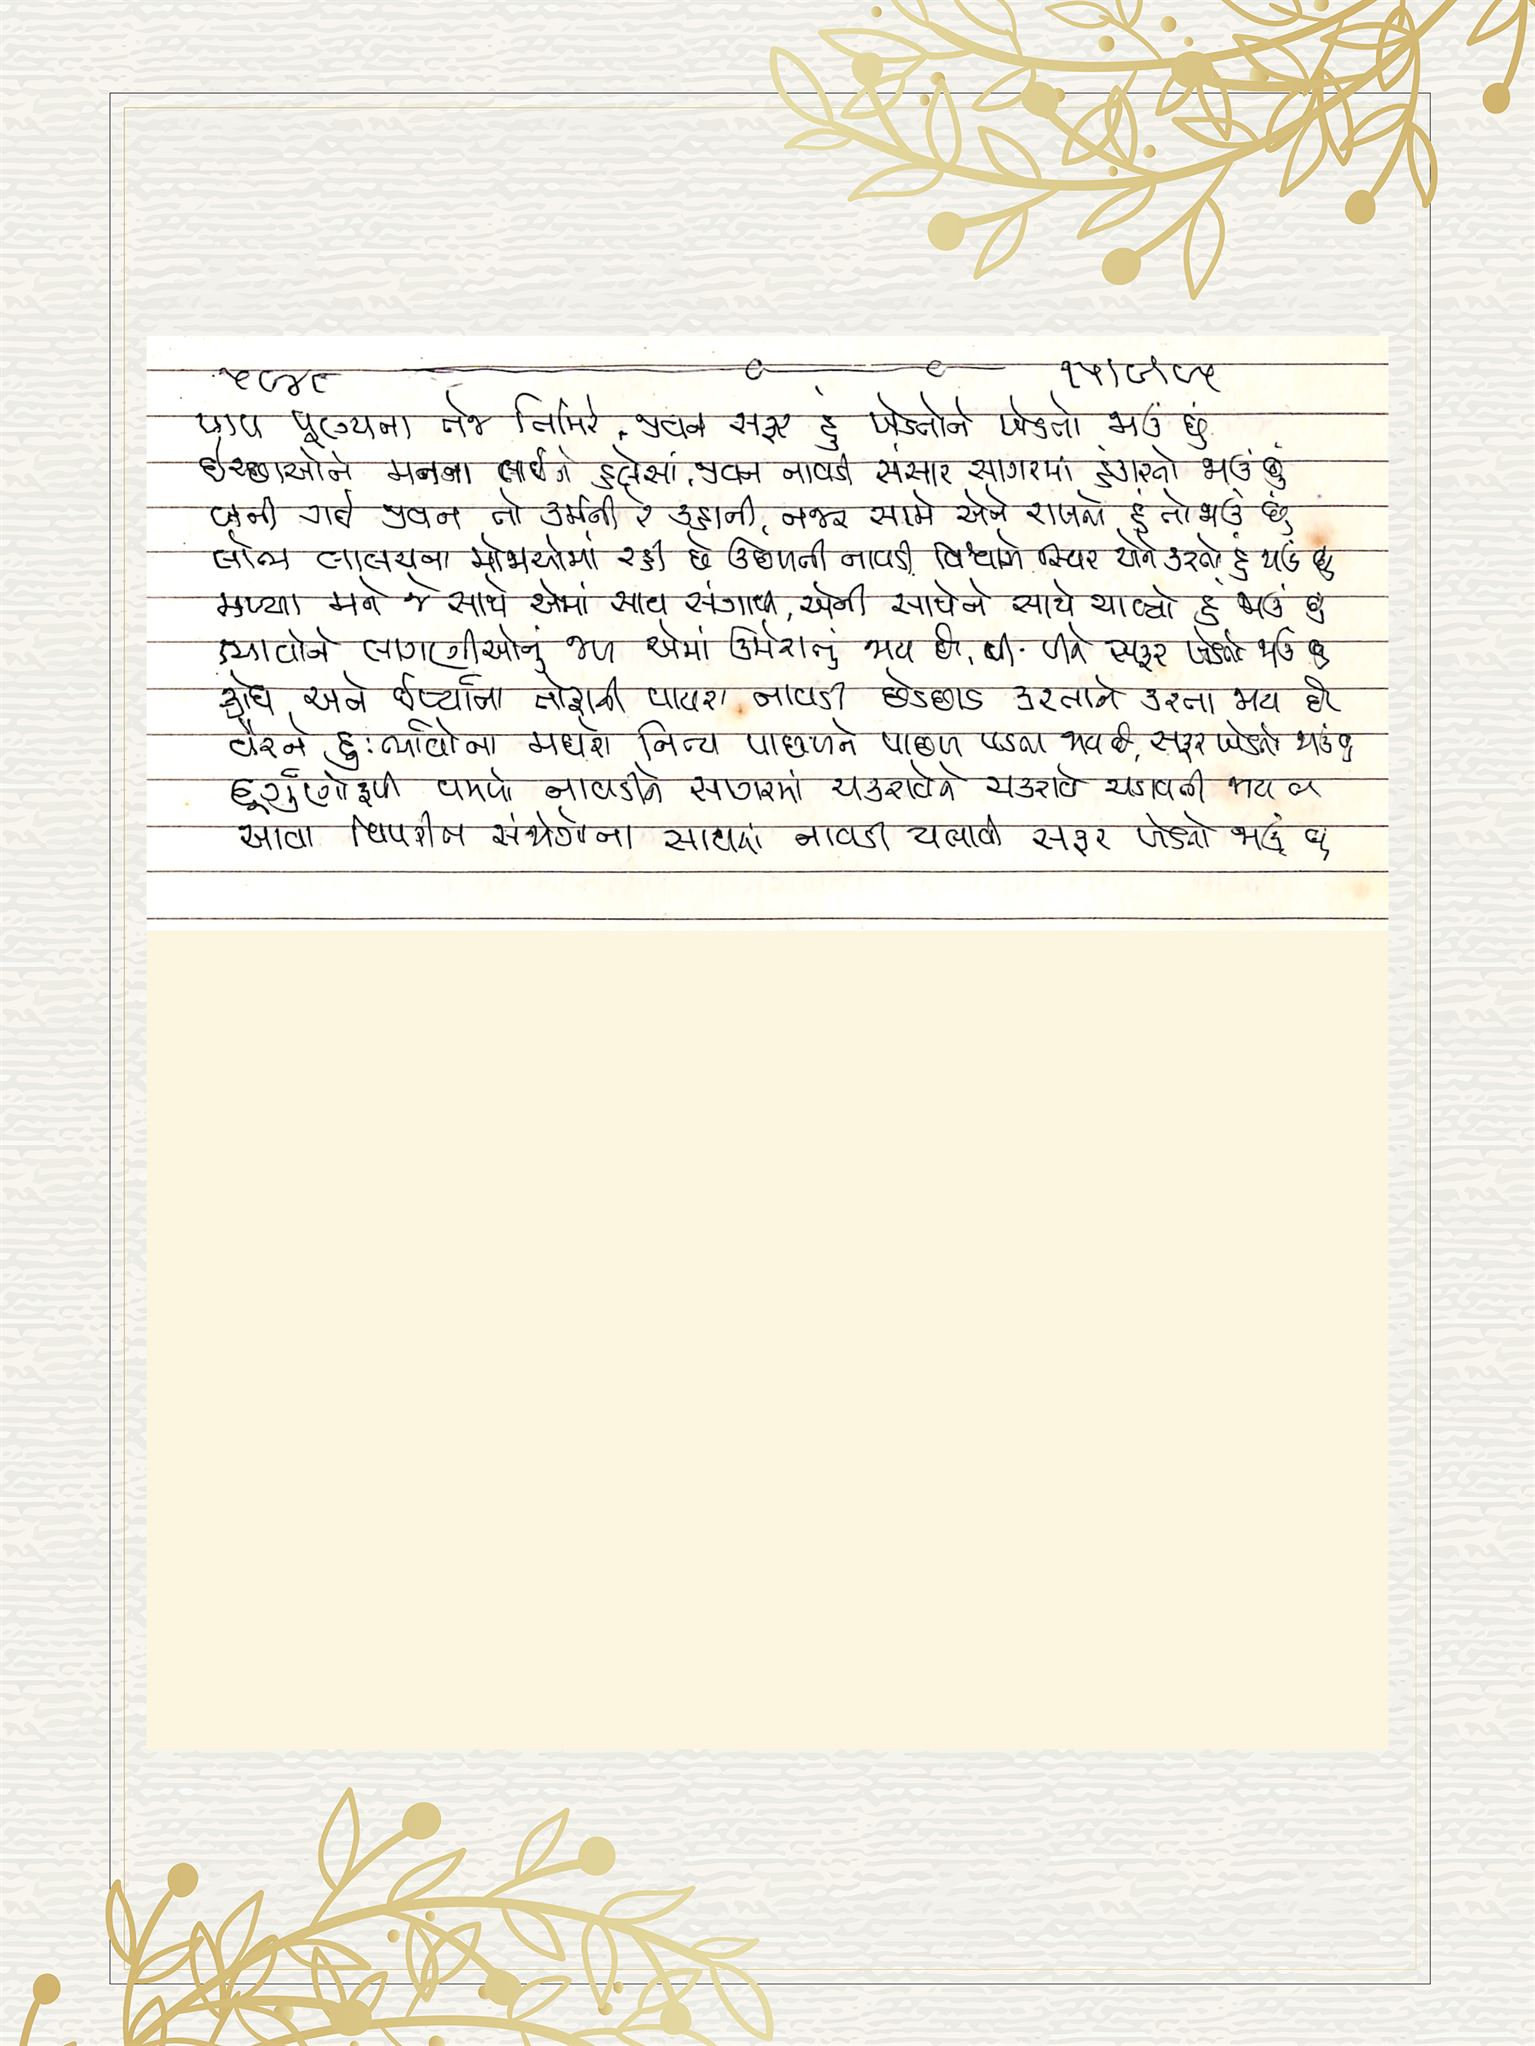 ૫૯૪૯ ૧૫/૯/૯૫
પાપ પૂણ્યના તેજ તિમિરે, જીવન સફર હું ખેડતોને ખેડતો જાઉં છું
ઈચ્છાઓને મનના લઈને હલેસાં, જીવન નાવડી સંસાર સાગરમાં હંકારતો જાઉં છું
બની ગઈ જીવન તો કર્મની રે કહાની, નજર સામે એને રાખતો હું તો જાઉં છું
લોભ લાલચના મોજાઓમાં રહી છે ઉછળતી નાવડી, વિશ્વાસે સ્થિર એને કરતો હું જાઉં છું
મળ્યા મને જે સાથે એમાં સાથ સંગાથ, એની સાથેને સાથે ચાલ્યો હું જાઉં છું
ભાવોને લાગણીઓનું જળ એમાં ઉમેરાતું જાય છે, પી પીને સફર ખેડતો જાઉં છું
ક્રોધ, અને ઈર્ષ્યાના તોફાની વાયરા નાવડી છેડછાડ કરતાને કરતા જાય છે
વૈરને દુઃર્ભાવોના મધદરિયે નિત્ય પાછળને પાછળ પડતા જાય છે, સફર ખેડતો જાઉં છું
દુર્ગુણોરૂપી વમળો નાવડીને સાગરમાં ચકરાવેને ચકરાવે ચડાવતી જાય છે
આવા વિપરીત સંજોગોના સાથમાં નાવડી ચલાવી સફર ખેડતો જાઉં છું